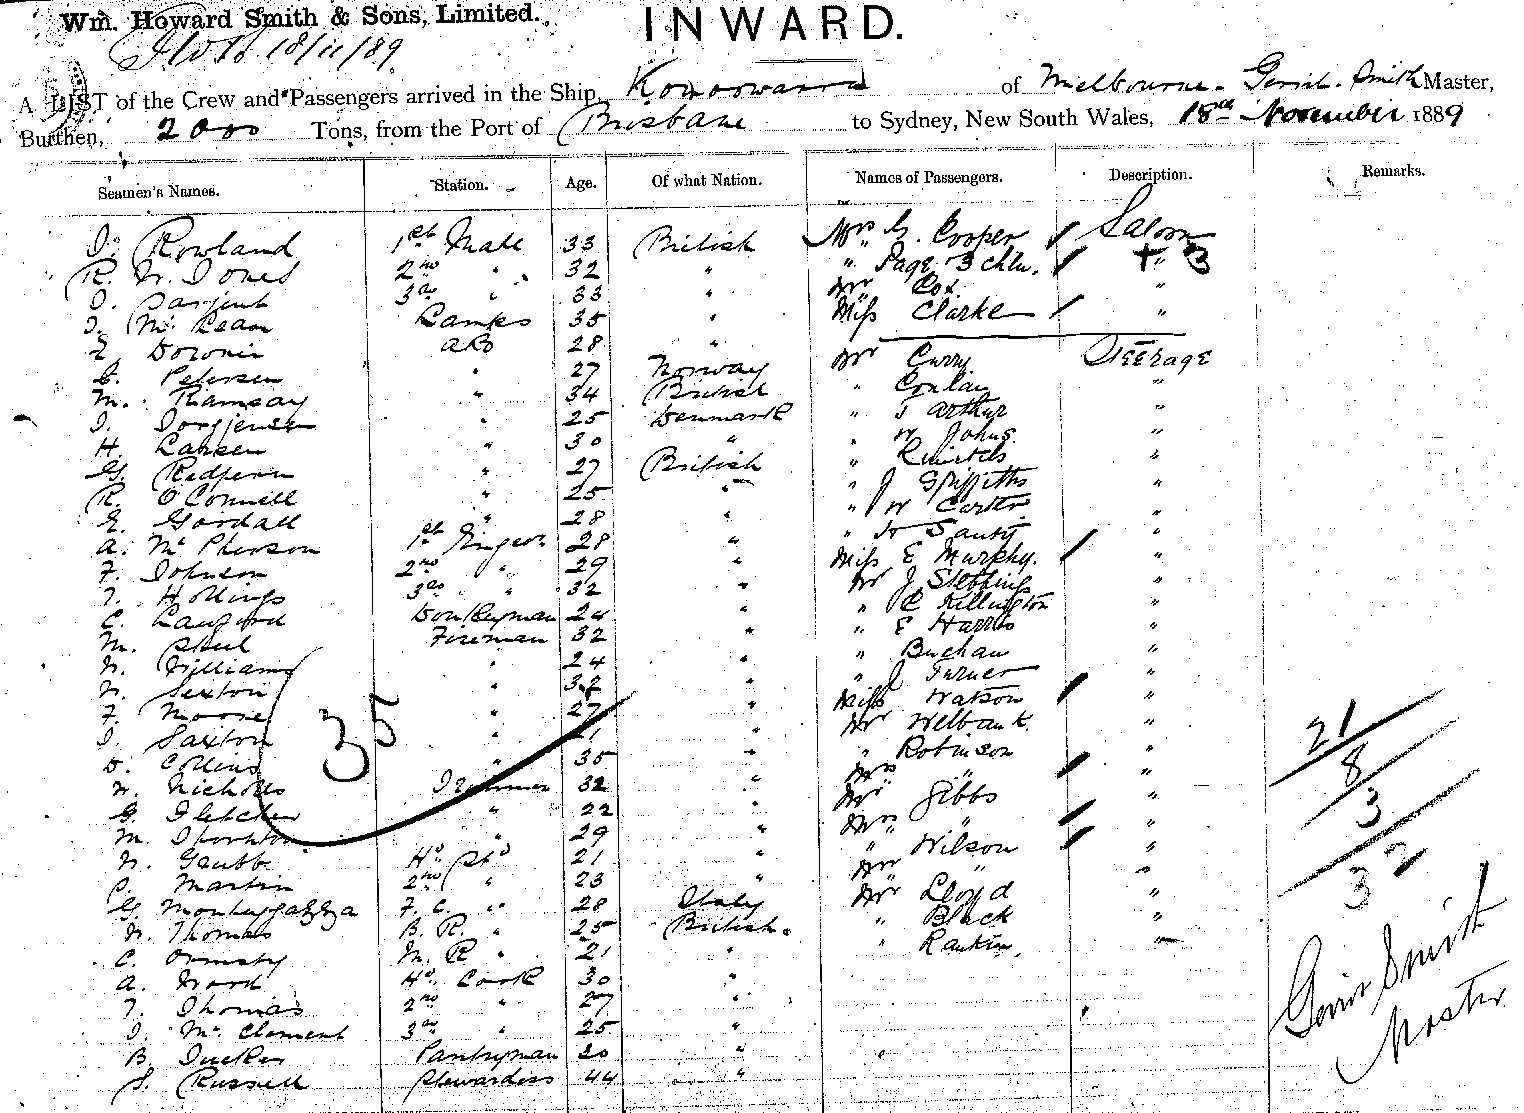 Wm. Howard Smith & Sons, Limited.
INWARD.
18/11/89
A LIST of the Crew and Passengers arrived in the Ship of Melbourne - Smith Master,
Burthen, 2000 Tons, from the Port of Brisbane to Sydney, New South Wales, 18th November 1889
Seamen's Names. Station. Age. Of what Nation. Names of Passengers. Description. Remarks.
Rowland 1st Mate 33 British Mrs G. Cooper Saloon
R. W. Jones 2nd " 32 " " Page 3 chln. " + 3
Sargent 3rd " 33 " Mr Cox "
McLean Lamps 35 " Miss Clarke "
AB 28 " Mr Curry Steerage
Petersen " 27 Norway " Conlan "
M. Ramsay " 34 British " T Arthur "
" 25 Denmark " W Johns "
H. Larsen " 30 " "
G. Redfern " 27 British " J Griffiths "
R. O'Connell " 25 " " W Carter "
E. Goodall " 28 " " "
A. McPherson 1st 28 " Miss E Murphy. "
F. Johnson 2nd " 29 " Mr J Stebbings "
T. Hollings 3rd " 32 " " C Killington "
C. Donkeyman 24 " " E Harris "
M. Fireman 32 " " Buchan "
W. Williams " 24 " " J Turner "
W. Sexton " 32 " Miss Watson "
F. Moore " 27 " Mr Welbank "
Saxton " 21 " " Robinson "
D. Collins " 35 " Mrs " "
W. Nicholls 32 " Mr Gibbs "
G. Fletcher " 22 Mrs " "
M. " 29 " " Wilson "
W. Grubb 21 " "
Martin 2nd " 23 " Mr Lloyd "
G. F. C. " 28 Italy " Black "
W. Thomas B. R. " 25 British " Rankin "
C. Ormsby M. R " 21 "
A. Ward Hd Cook 30 "
T. Thomas 2nd " 27 "
McClement 3rd " 25 "
B. Tucker Pantryman 20 "
S. Russell Stewardess 44 "
35
21
8
3
32
Smith
Master